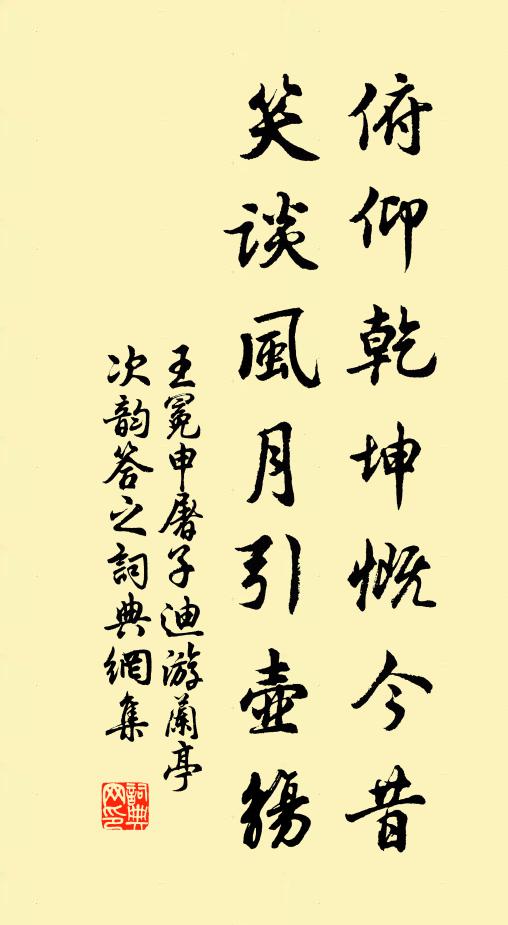 俯仰乾坤慨今昔
笑談風月引壺觴
王冕申屠子迪游蘭亭
次韵答之詞典網集
詞典
网印